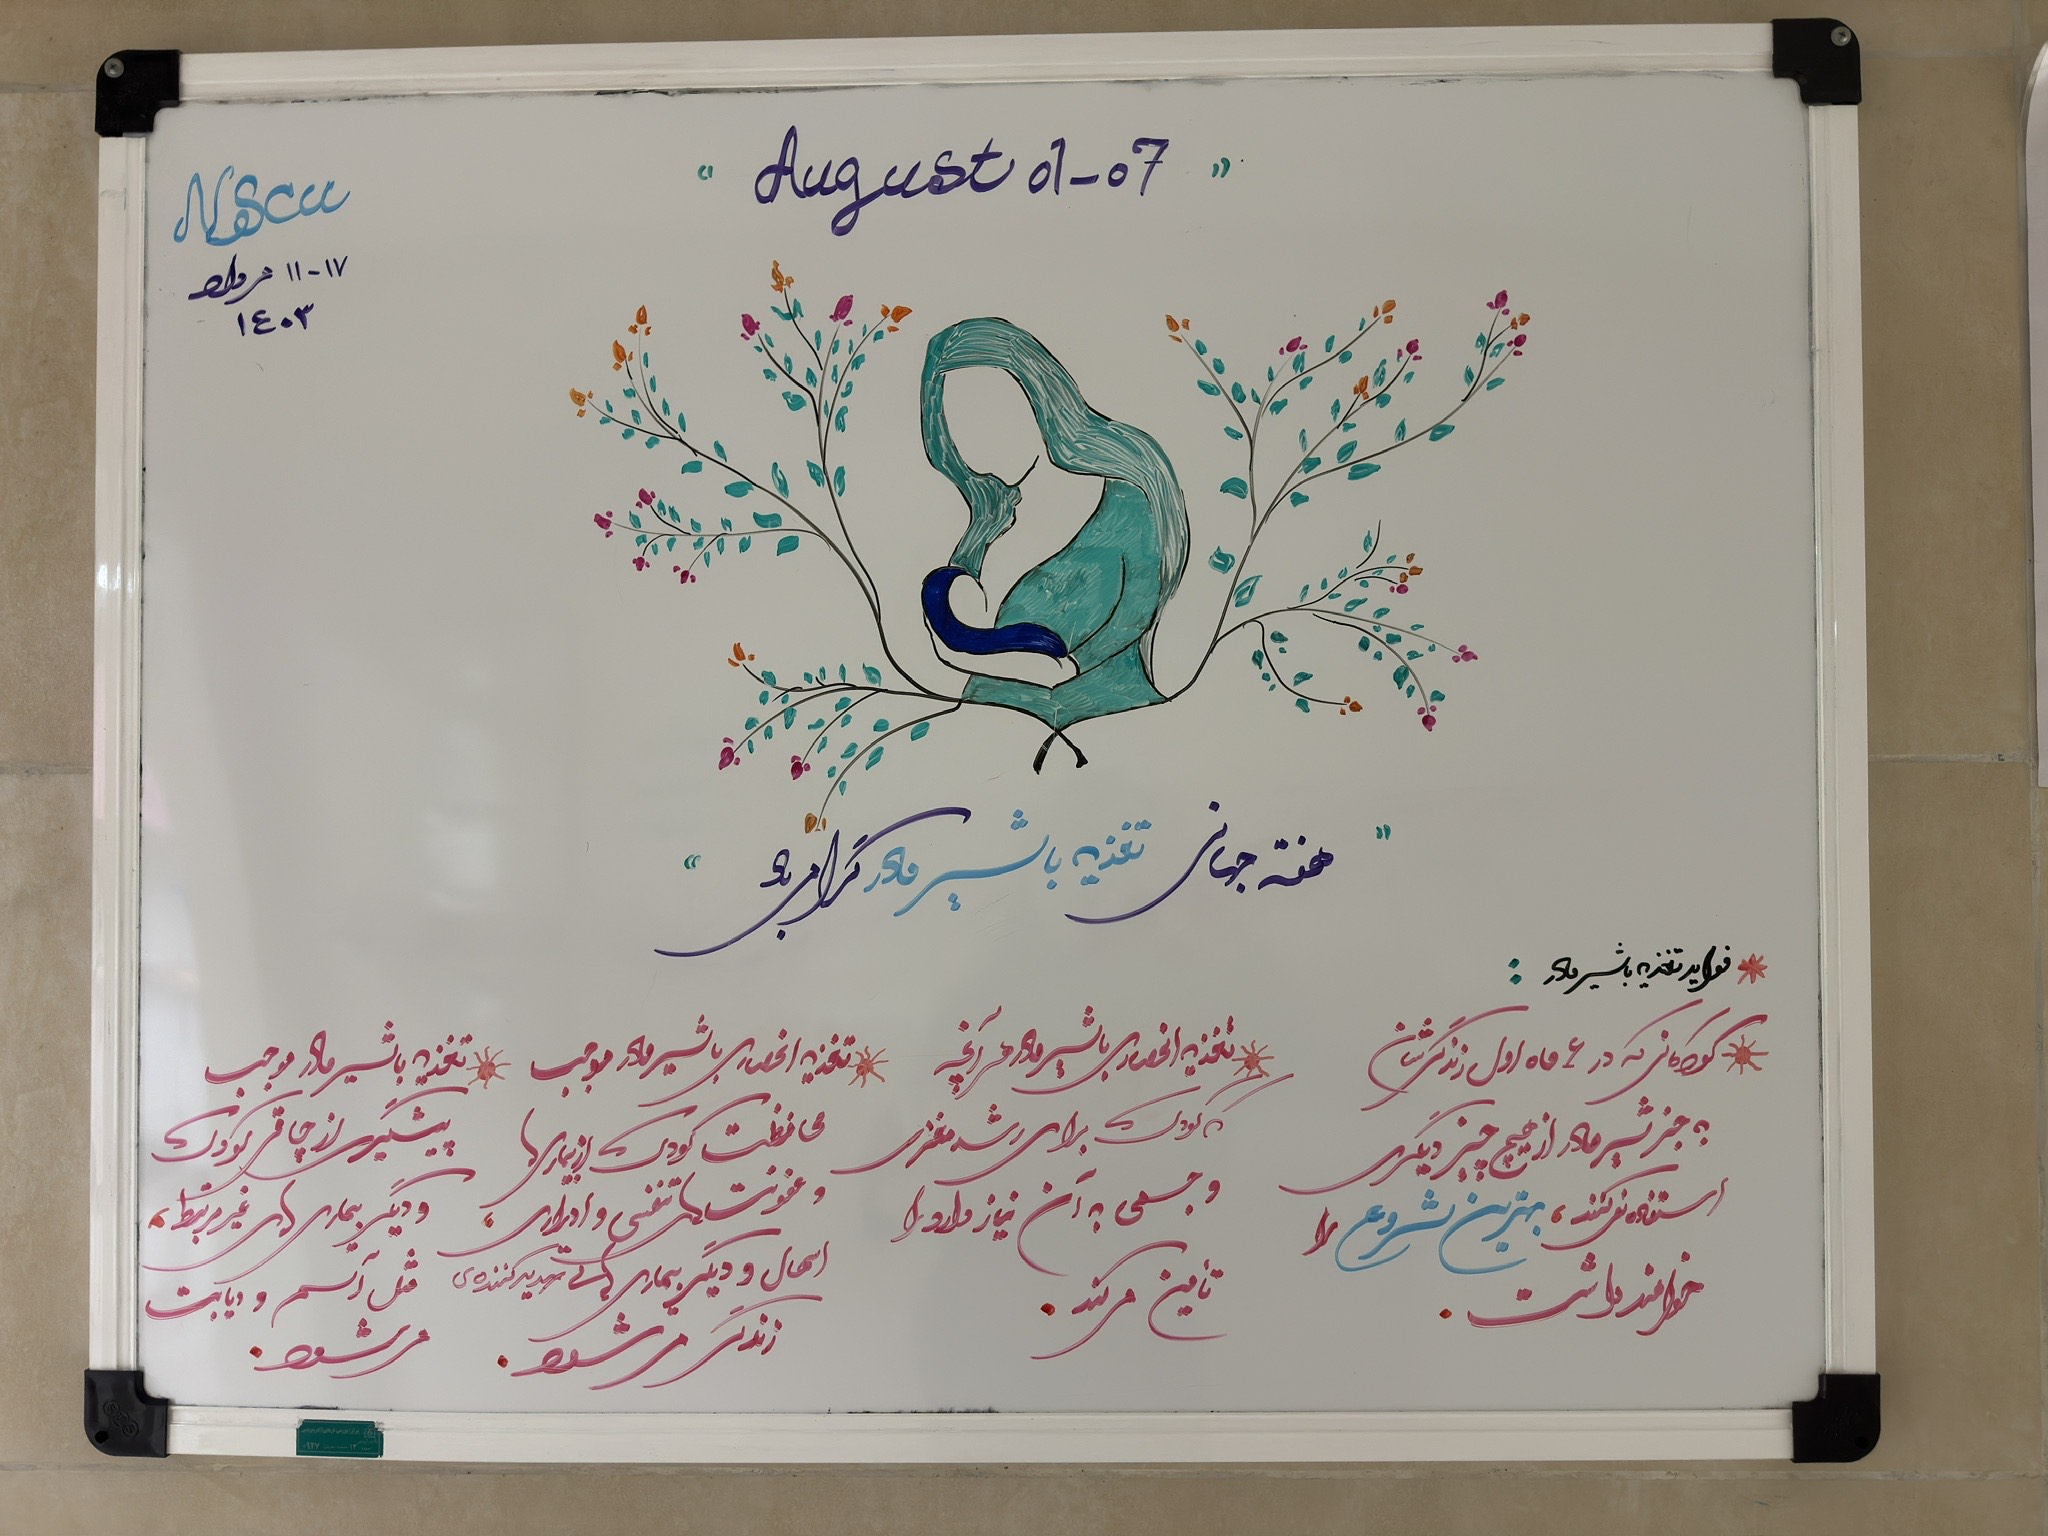 " August 01-07 "
NSCU
۱۱-۱۷ مرداد
۱۴۰۳
" هفته جهانی تغذیه با شیر مادر گرامی باد "
فواید تغذیه با شیر مادر :
کودکانی که در ۶ ماه اول زندگی‌شان
به جز شیر مادر از هیچ چیز دیگری
استفاده نمی‌کنند، بهترین شروع را
خواهند داشت.
تغذیه انحصاری با شیر مادر هر آنچه
که کودک برای رشد مغزی
و جسمی به آن نیاز دارد را
تأمین می‌کند.
تغذیه انحصاری با شیر مادر موجب
محافظت کودک از بیماری‌ها
و عفونت‌های تنفسی و ادراری،
اسهال و دیگر بیماری‌های تهدیدکننده‌ی
زندگی می‌شود.
تغذیه با شیر مادر موجب
پیشگیری از چاقی کودک
و دیگر بیماری‌های غیرمرتبط،
مثل آسم و دیابت
می‌شود.